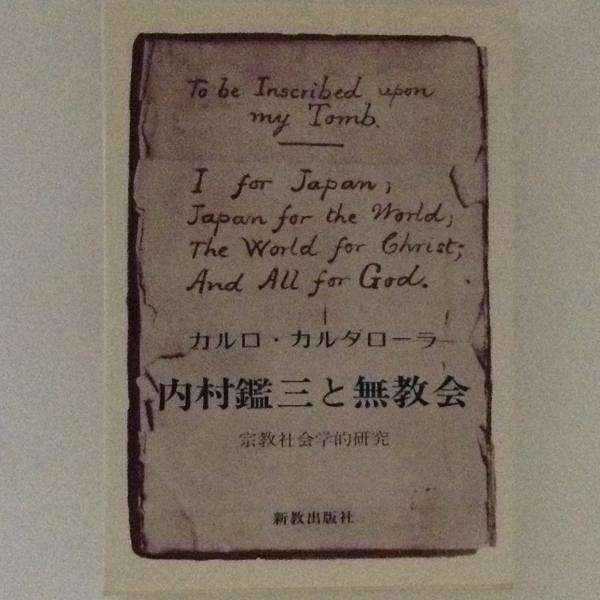 To be Inscribed upon
my Tomb.
I for Japan;
Japan for the World;
The World for Christ;
And All for God.
カルロ・カルダローラ
内村鑑三と無教会
宗教社会学的研究
新教出版社